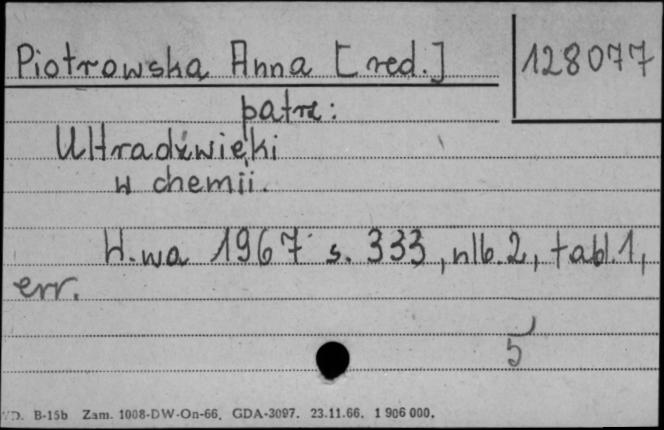 Piotrowska Anna [red.] 128077
patrz:
Ultradźwięki
w chemii.
W.wa 1967 s. 333, nlb. 2, tabl. 1,
err.
5
D. B-15b Zam. 1008-DW-On-66. GDA-3097. 23.11.66. 1 906 000.